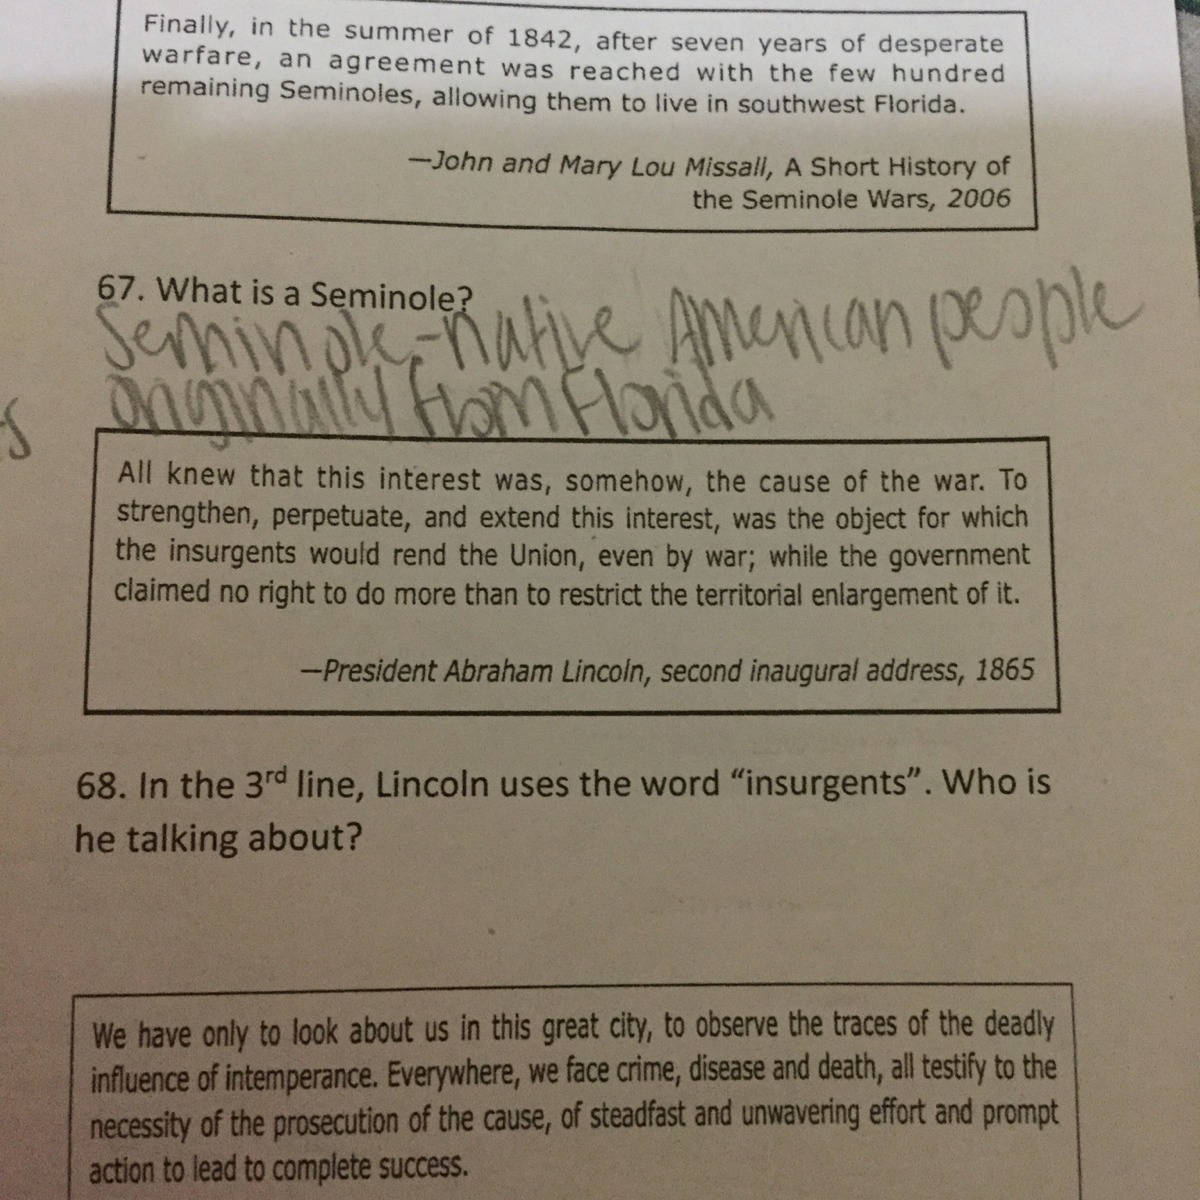 Finally, in the summer of 1842, after seven years of desperate
warfare, an agreement was reached with the few hundred
remaining Seminoles, allowing them to live in southwest Florida.
—John and Mary Lou Missall, A Short History of
the Seminole Wars, 2006
67. What is a Seminole?
Seminole-native American people
originally from Florida
s
All knew that this interest was, somehow, the cause of the war. To
strengthen, perpetuate, and extend this interest, was the object for which
the insurgents would rend the Union, even by war; while the government
claimed no right to do more than to restrict the territorial enlargement of it.
—President Abraham Lincoln, second inaugural address, 1865
68. In the 3rd line, Lincoln uses the word “insurgents”. Who is
he talking about?
We have only to look about us in this great city, to observe the traces of the deadly
influence of intemperance. Everywhere, we face crime, disease and death, all testify to the
necessity of the prosecution of the cause, of steadfast and unwavering effort and prompt
action to lead to complete success.